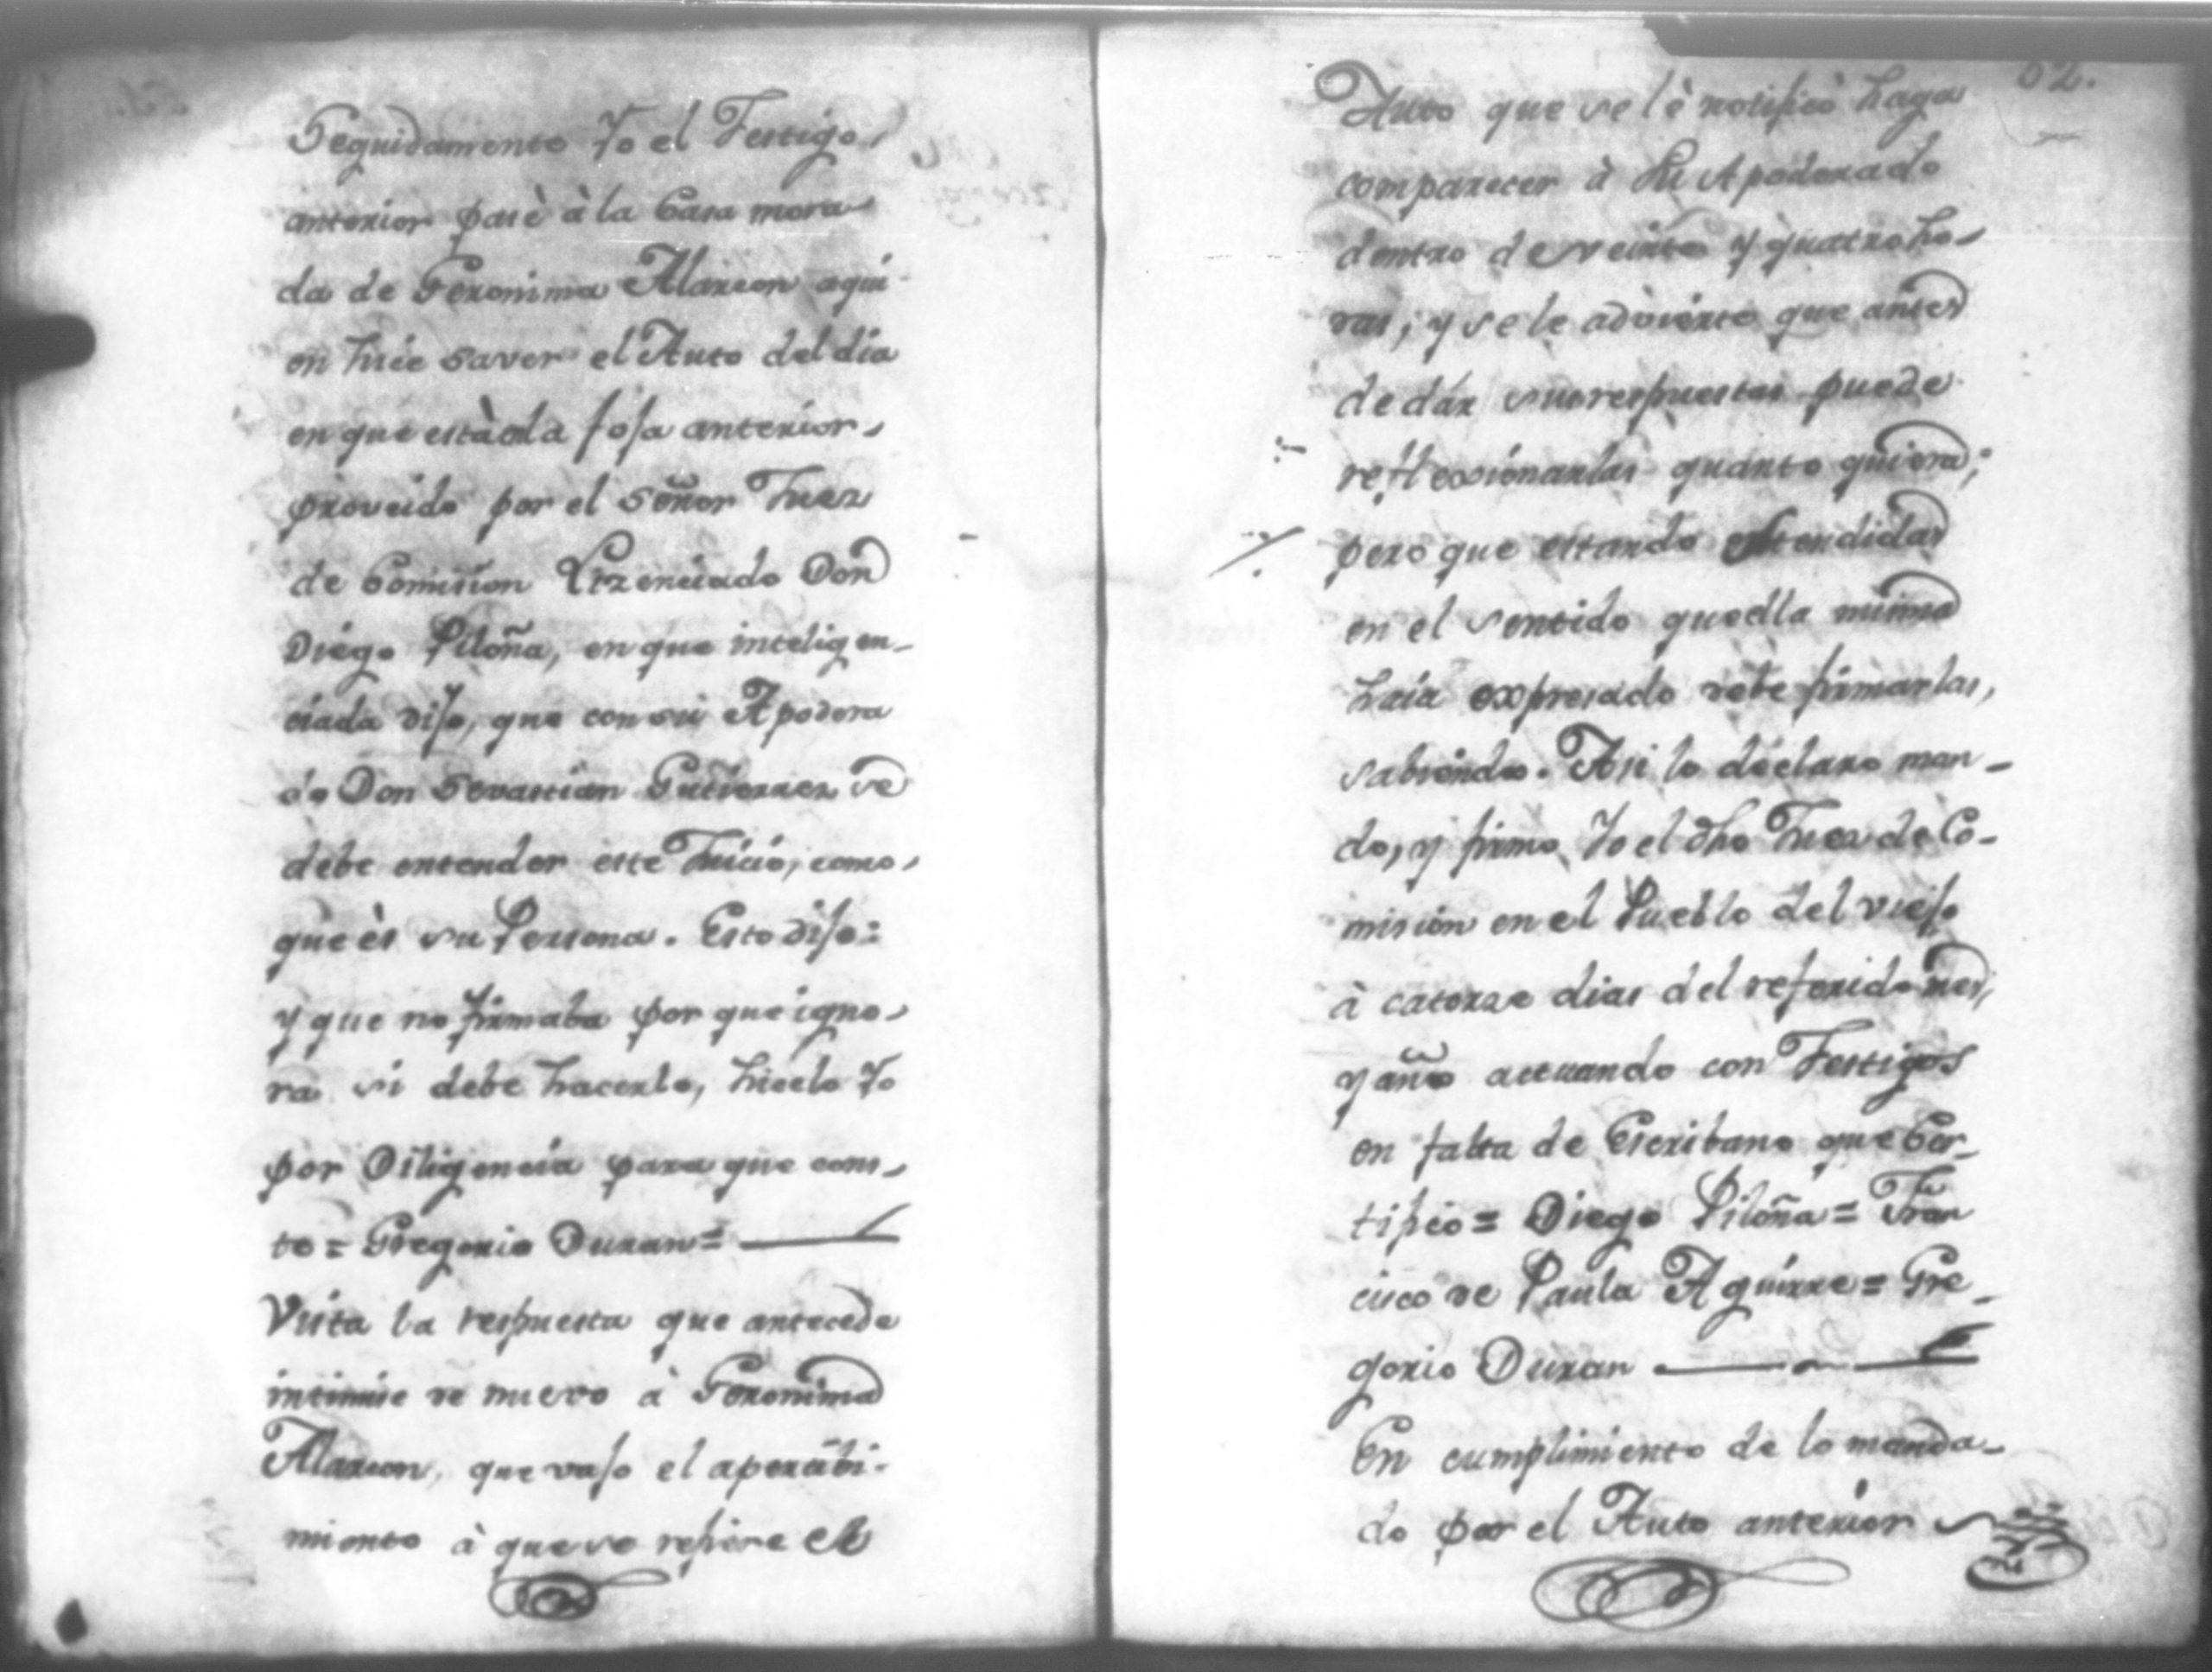 Seguidamente Yo el Testigo
anterior pasè à la Casa mora
da de Geronima Alarcon aqui
en hice saver el Auto del dia
en que està en la foja anterior
proveido por el Señor Juez
de Comision Lizenciado Don
Diego Piloña, en que inteligen-
ciada dijo, que con su Apodera
do Don Sevastian Gutierrez se
debe entender este Juicio, como
que ès su Persona. Esto dijo:
y que no firmaba por que igno-
ra si debe hacerlo, hicelo Yo
por Diligencia para que cons-
te = Gregorio Duran =
Vista la respuesta que antecede
intimise de nuevo à Geronima
Alarcon, que vajo el apercibi-
miento à que se refiere el
52.
Auto que se lè notificò haga
comparecer à su Apoderado
dentro de veinte y quatro ho-
ras; y se le advierte que antes
de dár sus respuestas puede
reflexsionarlas quanto quiera;
pero que estando extendidas
en el sentido que ella misma
haia expresado debe firmarlas,
sabiendo. Asi lo declaro man-
do, y firmo Yo el dho Juez de Co-
mision en el Pueblo del viejo
à catorze dias del referido mes,
y año actuando con Testigos
en falta de Escribano que Cer-
tifico = Diego Piloña = Fran
cisco de Paula Aguirre = Gre-
gorio Duran
En cumplimiento de lo manda-
do por el Auto anterior